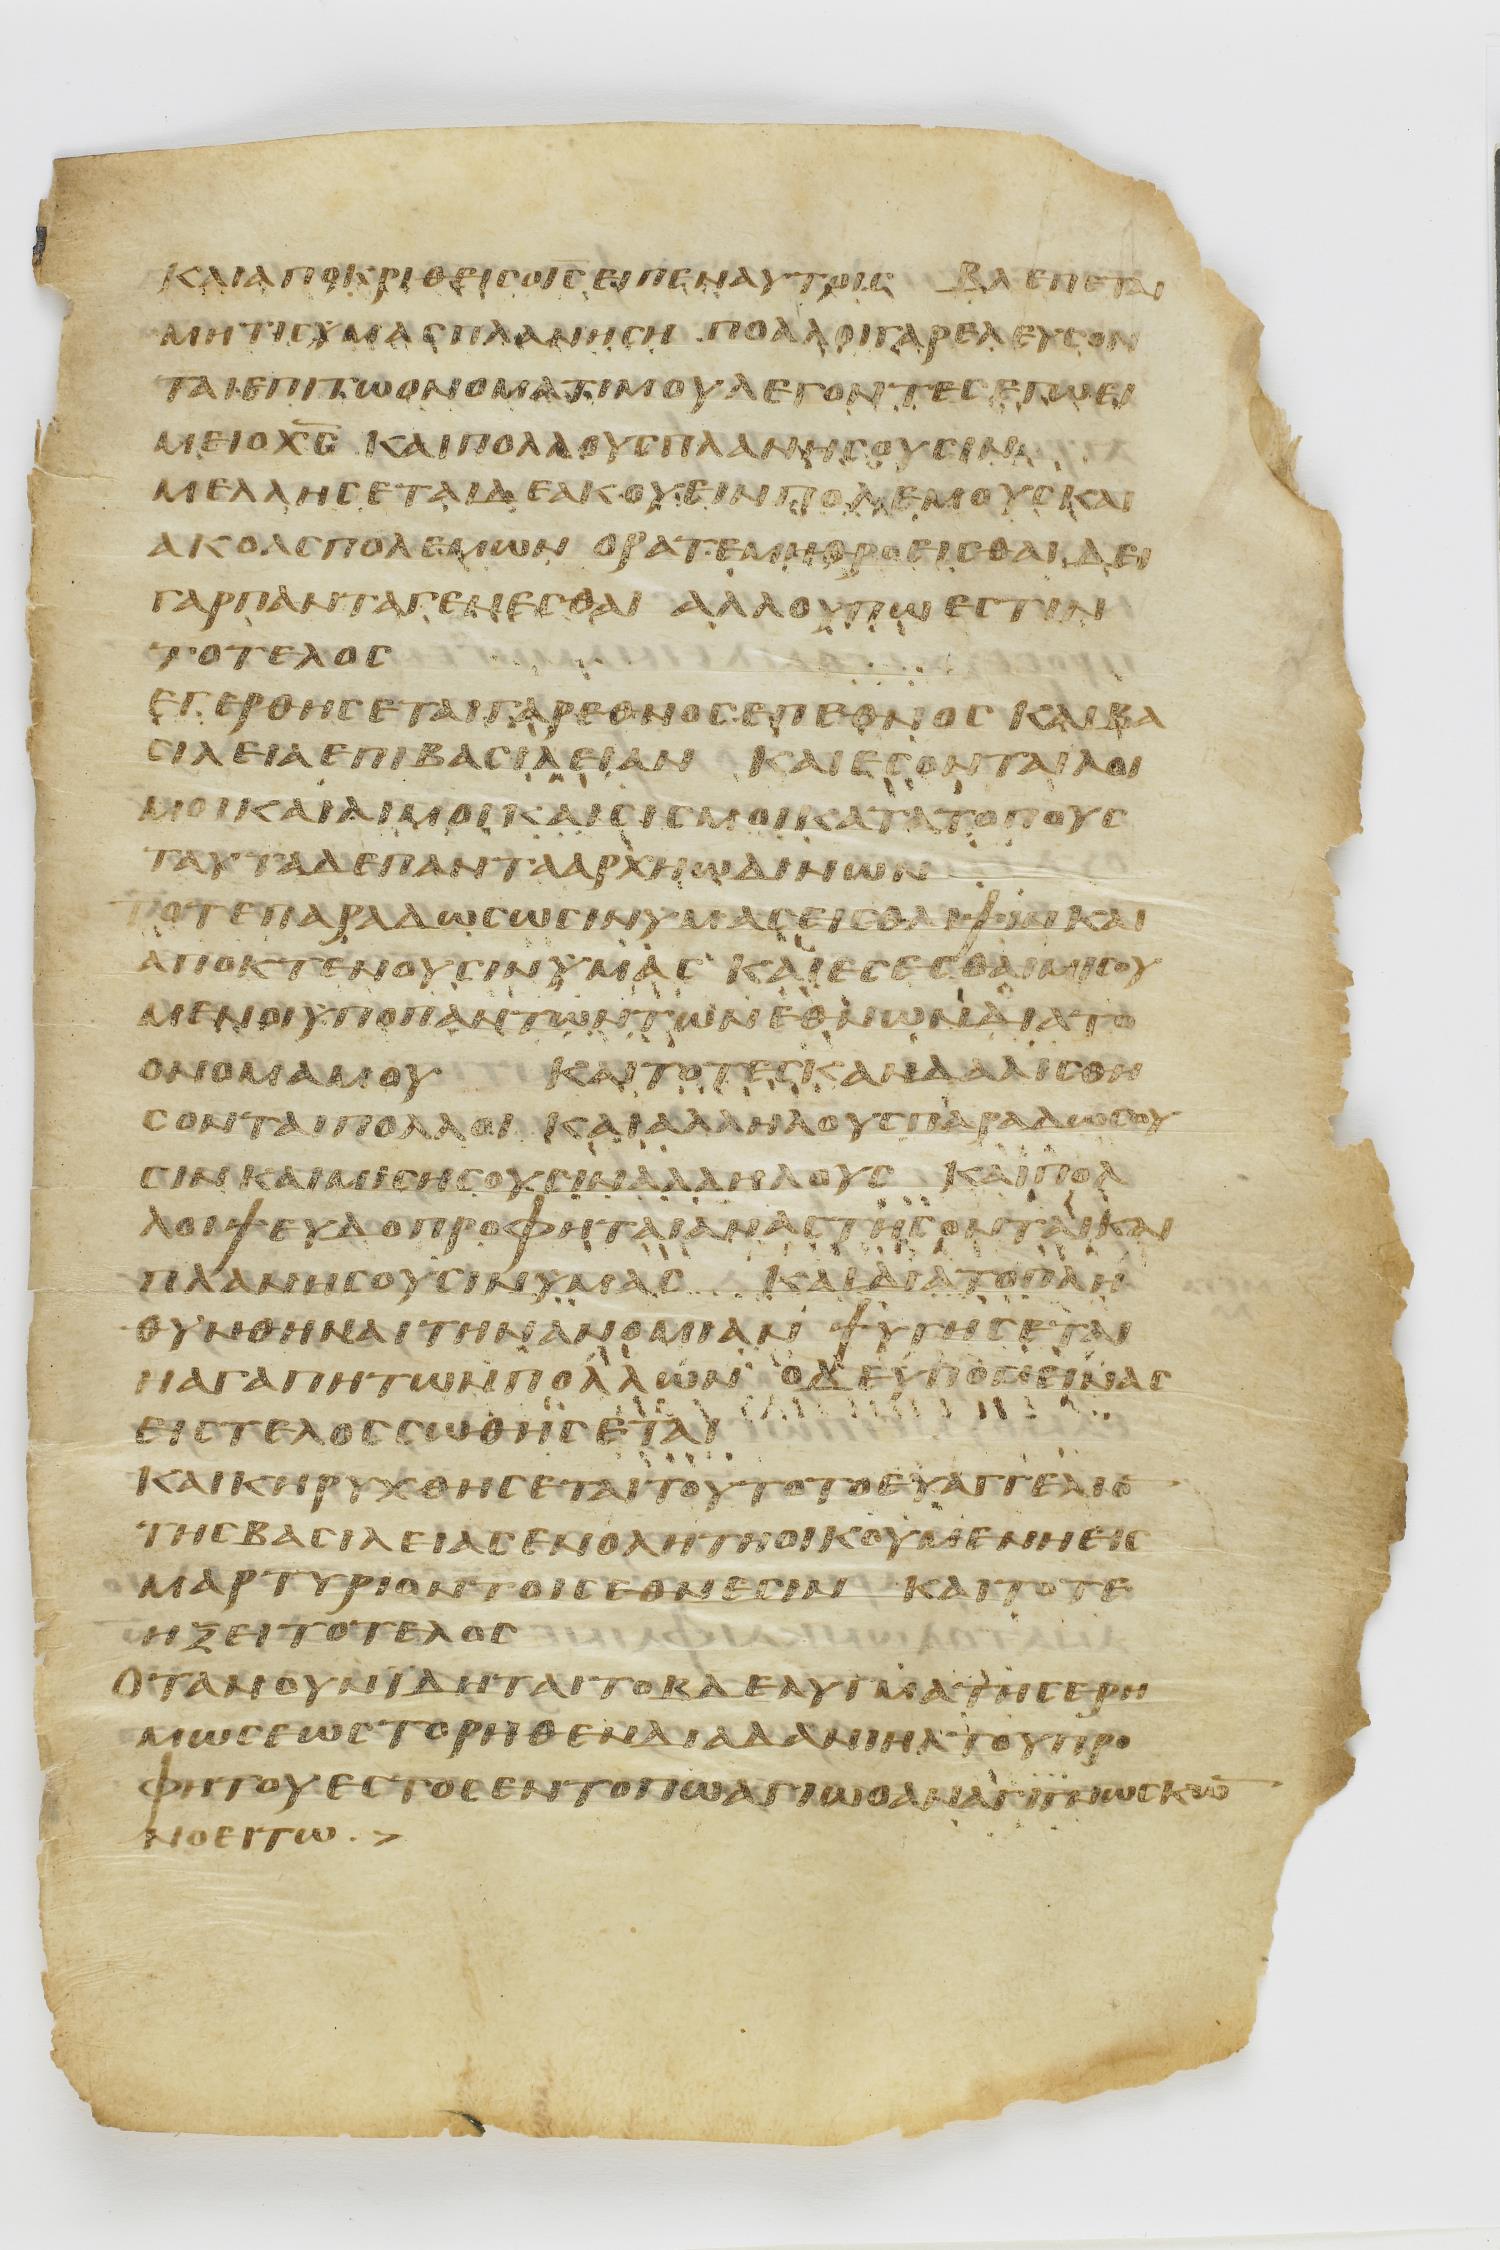 ΚΑΙΑΠΟΚΡΙΘΕΙϹΟΙ̅Ϲ̅ΕΙΠΕΝΑΥΤΟΙϹ ΒΛΕΠΕΤΑΙ
ΜΗΤΙϹΥΜΑϹΠΛΑΝΗϹΗ ΠΟΛΛΟΙΓΑΡΕΛΕΥϹΟΝ
ΤΑΙΕΠΙΤΩΟΝΟΜΑΤΙΜΟΥΛΕΓΟΝΤΕϹΕΓΩΕΙ
ΜΕΙΟΧ̅Ϲ̅ ΚΑΙΠΟΛΛΟΥϹΠΛΑΝΗϹΟΥϹΙΝ
ΜΕΛΛΗϹΕΤΑΙΔΕΑΚΟΥΕΙΝΠΟΛΕΜΟΥϹΚΑΙ
ΑΚΟΑϹΠΟΛΕΜΩΝ ΟΡΑΤΕΜΗΘΡΟΕΙϹΘΑΙΔΕΙ
ΓΑΡΠΑΝΤΑΓΕΝΕϹΘΑΙ ΑΛΛΟΥΠΩΕϹΤΙΝ
ΤΟΤΕΛΟϹ
ΕΓΕΡΘΗϹΕΤΑΙΓΑΡΕΘΝΟϹΕΠΙΕΘΝΟϹ ΚΑΙΒΑ
ϹΙΛΕΙΑΕΠΙΒΑϹΙΛΕΙΑΝ ΚΑΙΕϹΟΝΤΑΙΛΟΙ
ΜΟΙΚΑΙΛΙΜΟΙΚΑΙϹΙϹΜΟΙΚΑΤΑΤΟΠΟΥϹ
ΤΑΥΤΑΔΕΠΑΝΤΑΑΡΧΗΩΔΙΝΩΝ
ΤΟΤΕΠΑΡΑΔΩϹΩϹΙΝΥΜΑϹΕΙϹΘΛΙΨΙΝΚΑΙ
ΑΠΟΚΤΕΝΟΥϹΙΝΥΜΑϹ ΚΑΙΕϹΕϹΘΑΙΜΙϹΟΥ
ΜΕΝΟΙΥΠΟΠΑΝΤΩΝΤΩΝΕΘΝΩΝΔΙΑΤΟ
ΟΝΟΜΑΜΟΥ ΚΑΙΤΟΤΕϹΚΑΝΔΑΛΙϹΘΗ
ϹΟΝΤΑΙΠΟΛΛΟΙ ΚΑΙΑΛΛΗΛΟΥϹΠΑΡΑΔΩϹΟΥ
ϹΙΝΚΑΙΜΙϹΗϹΟΥϹΙΝΑΛΛΗΛΟΥϹ ΚΑΙΠΟΛ
ΛΟΙΨΕΥΔΟΠΡΟΦΗΤΑΙΑΝΑϹΤΗϹΟΝΤΑΙΚΑΙ
ΠΛΑΝΗϹΟΥϹΙΝΥΜΑϹ ΚΑΙΔΙΑΤΟΠΛΗ
ΘΥΝΘΗΝΑΙΤΗΝΑΝΟΜΙΑΝ ΨΥΓΗϹΕΤΑΙ
ΗΑΓΑΠΗΤΩΝΠΟΛΛΩΝ ΟΔΕΥΠΟΜΕΙΝΑϹ
ΕΙϹΤΕΛΟϹϹΩΘΗϹΕΤΑΙ
ΚΑΙΚΗΡΥΧΘΗϹΕΤΑΙΤΟΥΤΟΤΟΕΥΑΓΓΕΛΙΟ̅
ΤΗϹΒΑϹΙΛΕΙΑϹΕΝΟΛΗΤΗΟΙΚΟΥΜΕΝΗΕΙϹ
ΜΑΡΤΥΡΙΟΝΤΟΙϹΕΘΝΕϹΙΝ ΚΑΙΤΟΤΕ
ΗΞΕΙΤΟΤΕΛΟϹ
ΟΤΑΝΟΥΝΙΔΗΤΑΙΤΟΒΔΕΛΥΓΜΑΤΗϹΕΡΗ
ΜΩϹΕΩϹΤΟΡΗΘΕΝΔΙΑΔΑΝΙΗΛΤΟΥΠΡΟ
ΦΗΤΟΥΕϹΤΟϹΕΝΤΟΠΩΑΓΙΩΟΑΝΑΓΙΓΝΩϹΚΩ̅
ΝΟΕΙΤΩ . >